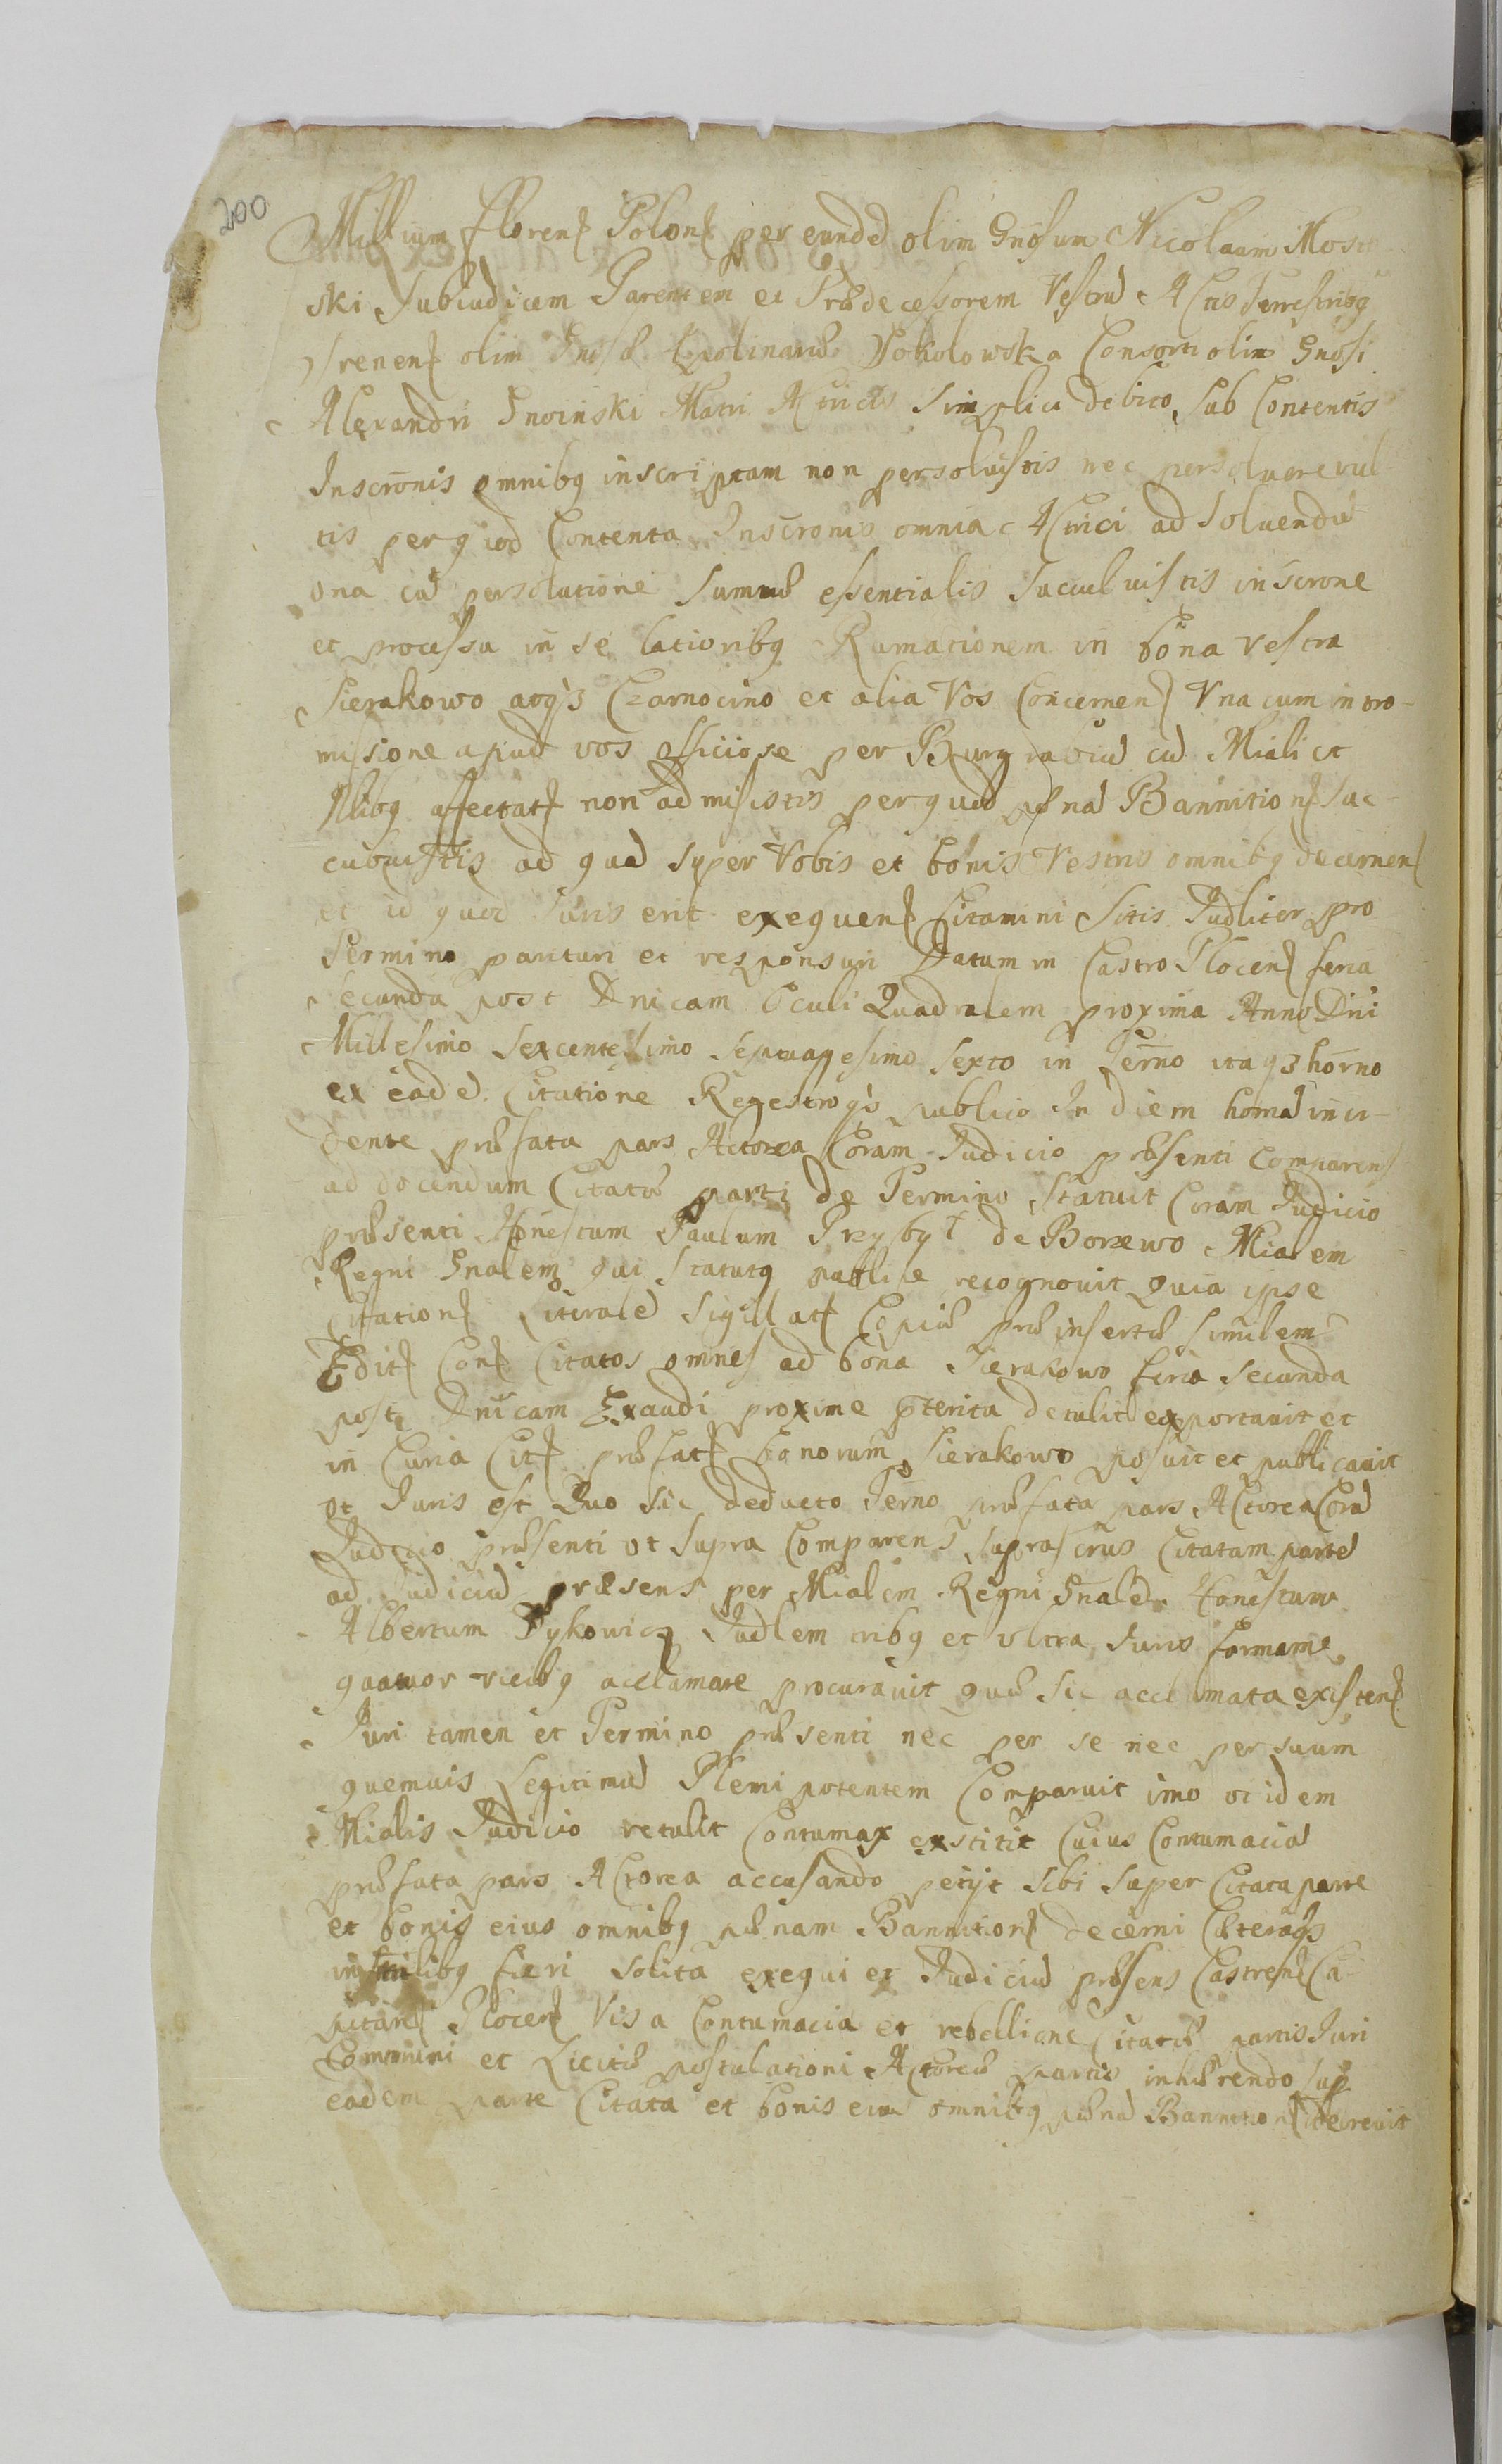 200
Millium floren Polon per eunde olim Gnosum Nicolaum Mosto
ski Subiudicem Parentem et Prædecessorem Vestru Actis Terrestribg
Srenen olim Gnosæ Apolinaræ Sokolowska Consorti olim Gnosi
Alexandri Gnoinski Matri Actricis simplici debito sub Contentis
Inscronis omnibg inscriptam non persoluistis nec persoluere vul
tis per quod Contenta Inscronis omnia Actrici ad soluendu
vna cu persolutione summæ essentialis succubuistis inscrone
et processu in se latioribg Rumationem in bona vestra
Sierakowo atq3 Czarnocino et alia Vos Concernen Vna cum intro-
missione apud vos officiose per Burgrabiu cu Miali et
Nlibg affectat non admisistis per quod pæna Bannition suc-
cubuistis ad qua super Vobis et bonis Vestris omnibg decernen
et id quod Iuris erit exequen Citamini Sitis Iudliter pro
Termino parituri et responsuri Datum in Castro Plocen feria
Secunda post Dnicam Oculi Quadralem proxima Anno Dni
Millesimo sexcentesimo septuagesimo sexto in Termo itaq3 horno
ex eade Citatione Regestroq3 publico In diem homa inci-
dente præfata pars Actorea Coram Iudicio præsenti Comparens
ad docendum Citatæ parti de Termino statuit Coram Iudicio
præsenti Honestum Paulum Przybył de Borzewo Mialem
Regni Gnalem qui statutg publice recognouit quia ipse
Citation Literale sigillat Copiæ præinsertæ similem
Edit Con Citatos omnes ad bona Sierakowo feria secunda
post Dnicam Exaudi proxime pterita detulit exportauit et
in Curia Cit præfat bonorum Sierakowo posuit et publicauit
vt Iuris est Quo sic deducto Termo præfata pars Actorea Cora
Iudicio præsenti vt supra Comparens suprascrius Citatam parte
ad Iudiciu præsens per Mialem Regni Gnale Honestum
Albertum Fykowicz Iudlem tribg et vltra Iuris formam
quatuor vicibg acclamare procurauit quæ sic acclamata existen
Iuri tamen et Termino præsenti nec per se nec per suum
quemuis Legitimu Plenipotentem Comparuit imo vt idem
Mialis Iudicio retulit Contumax exstitit Cuius Contumacia
præfata pars Actorea accusando petijt sibi super Citata parte
et bonis eius omnibg pænam Bannition decerni Cæteraq3
in similibg fieri solita exequi et Iudiciu præsens Castren Ca-
pitan Plocen Visa Contumacia et rebellione Citatæ partis Iuri
Communi et Licitæ postulationi Actoreæ partis inhærendo sup
eadem parte Citata et bonis eius omnibg pæna Bannition decreuit